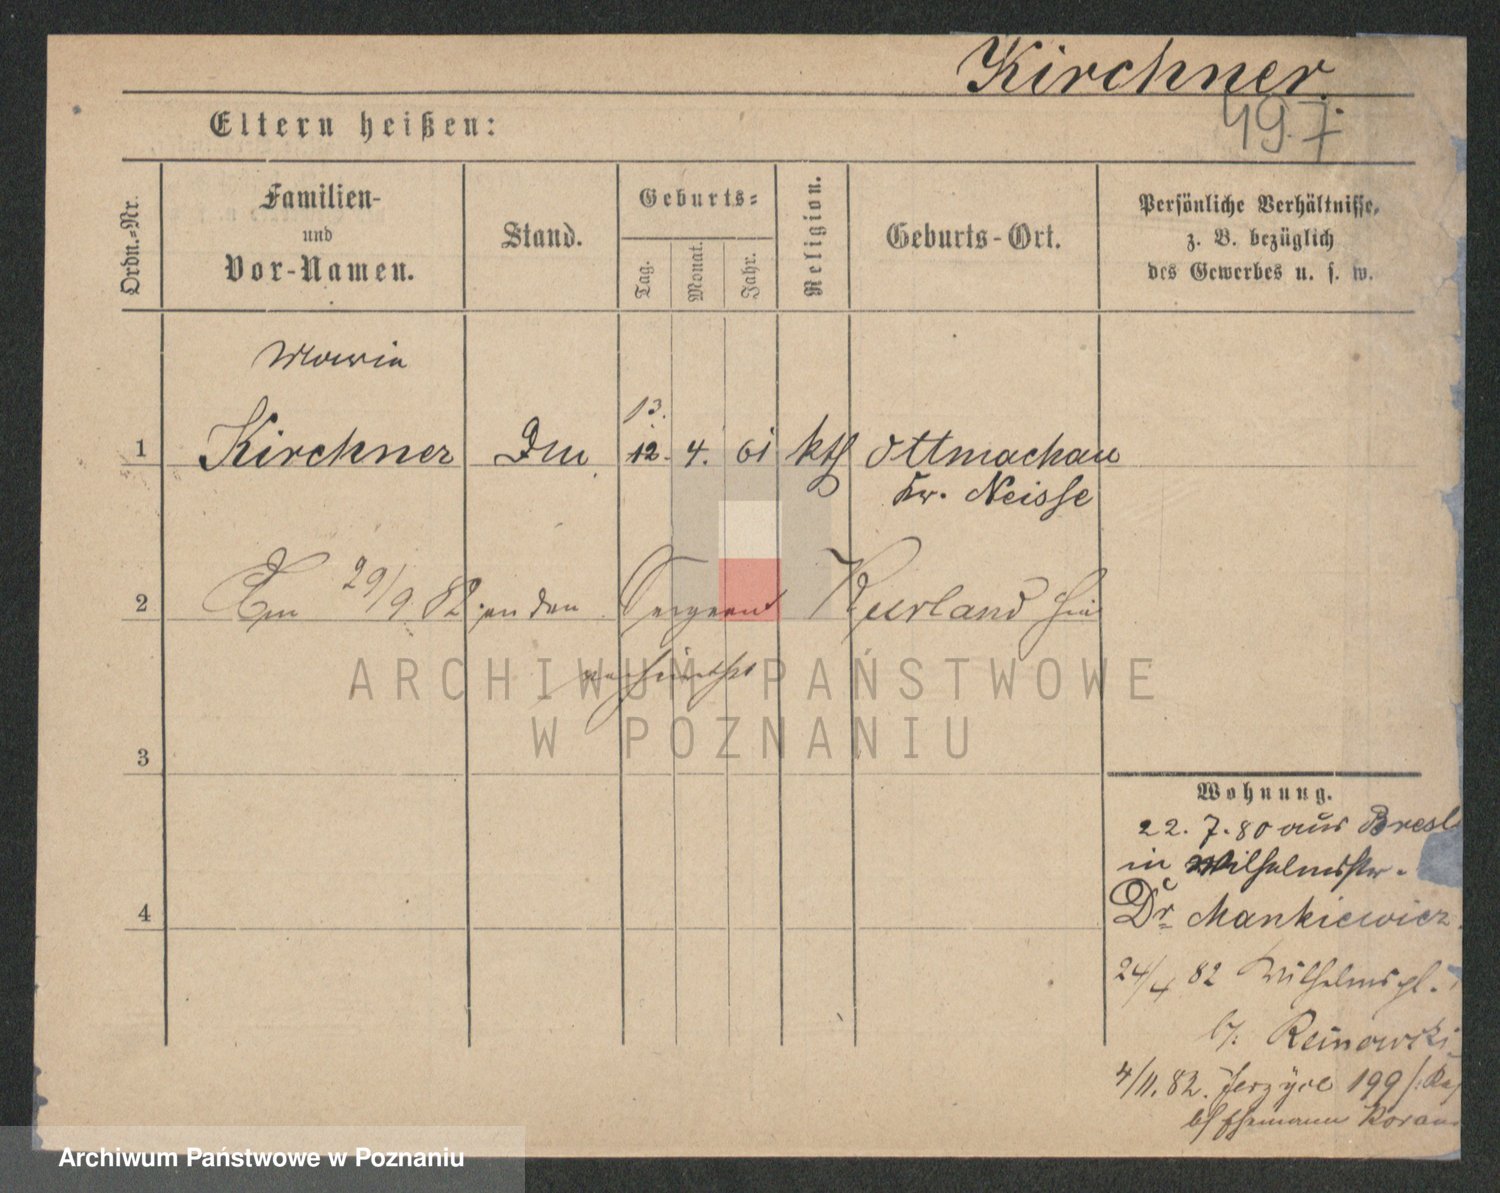 Kirchner.
497
Eltern heißen:
Ordn.-Nr.
Familien-
und
Vor-Namen.
Stand.
Geburts-
Tag.
Monat.
Jahr.
Religion.
Geburts-Ort.
Persönliche Verhältnisse,
z. B. bezüglich
des Gewerbes u. s. w.
Maria
13.
1 Kirchner 12. 4. 61 kth Ottmachau
Kr. Neisse
2 29/9 82 an den Sergeant Kurland hier
verheirathet
ARCHIWUM PAŃSTWOWE
W POZNANIU
3
4
Wohnung.
22. 7. 80 aus Bresl
in Wilhelmstr.
Dr Mankiewicz
24/4 82 Wilhelmspl.
b/. Reinowski
4/11. 82. Jerzyce 199
Ehemann
Archiwum Państwowe w Poznaniu